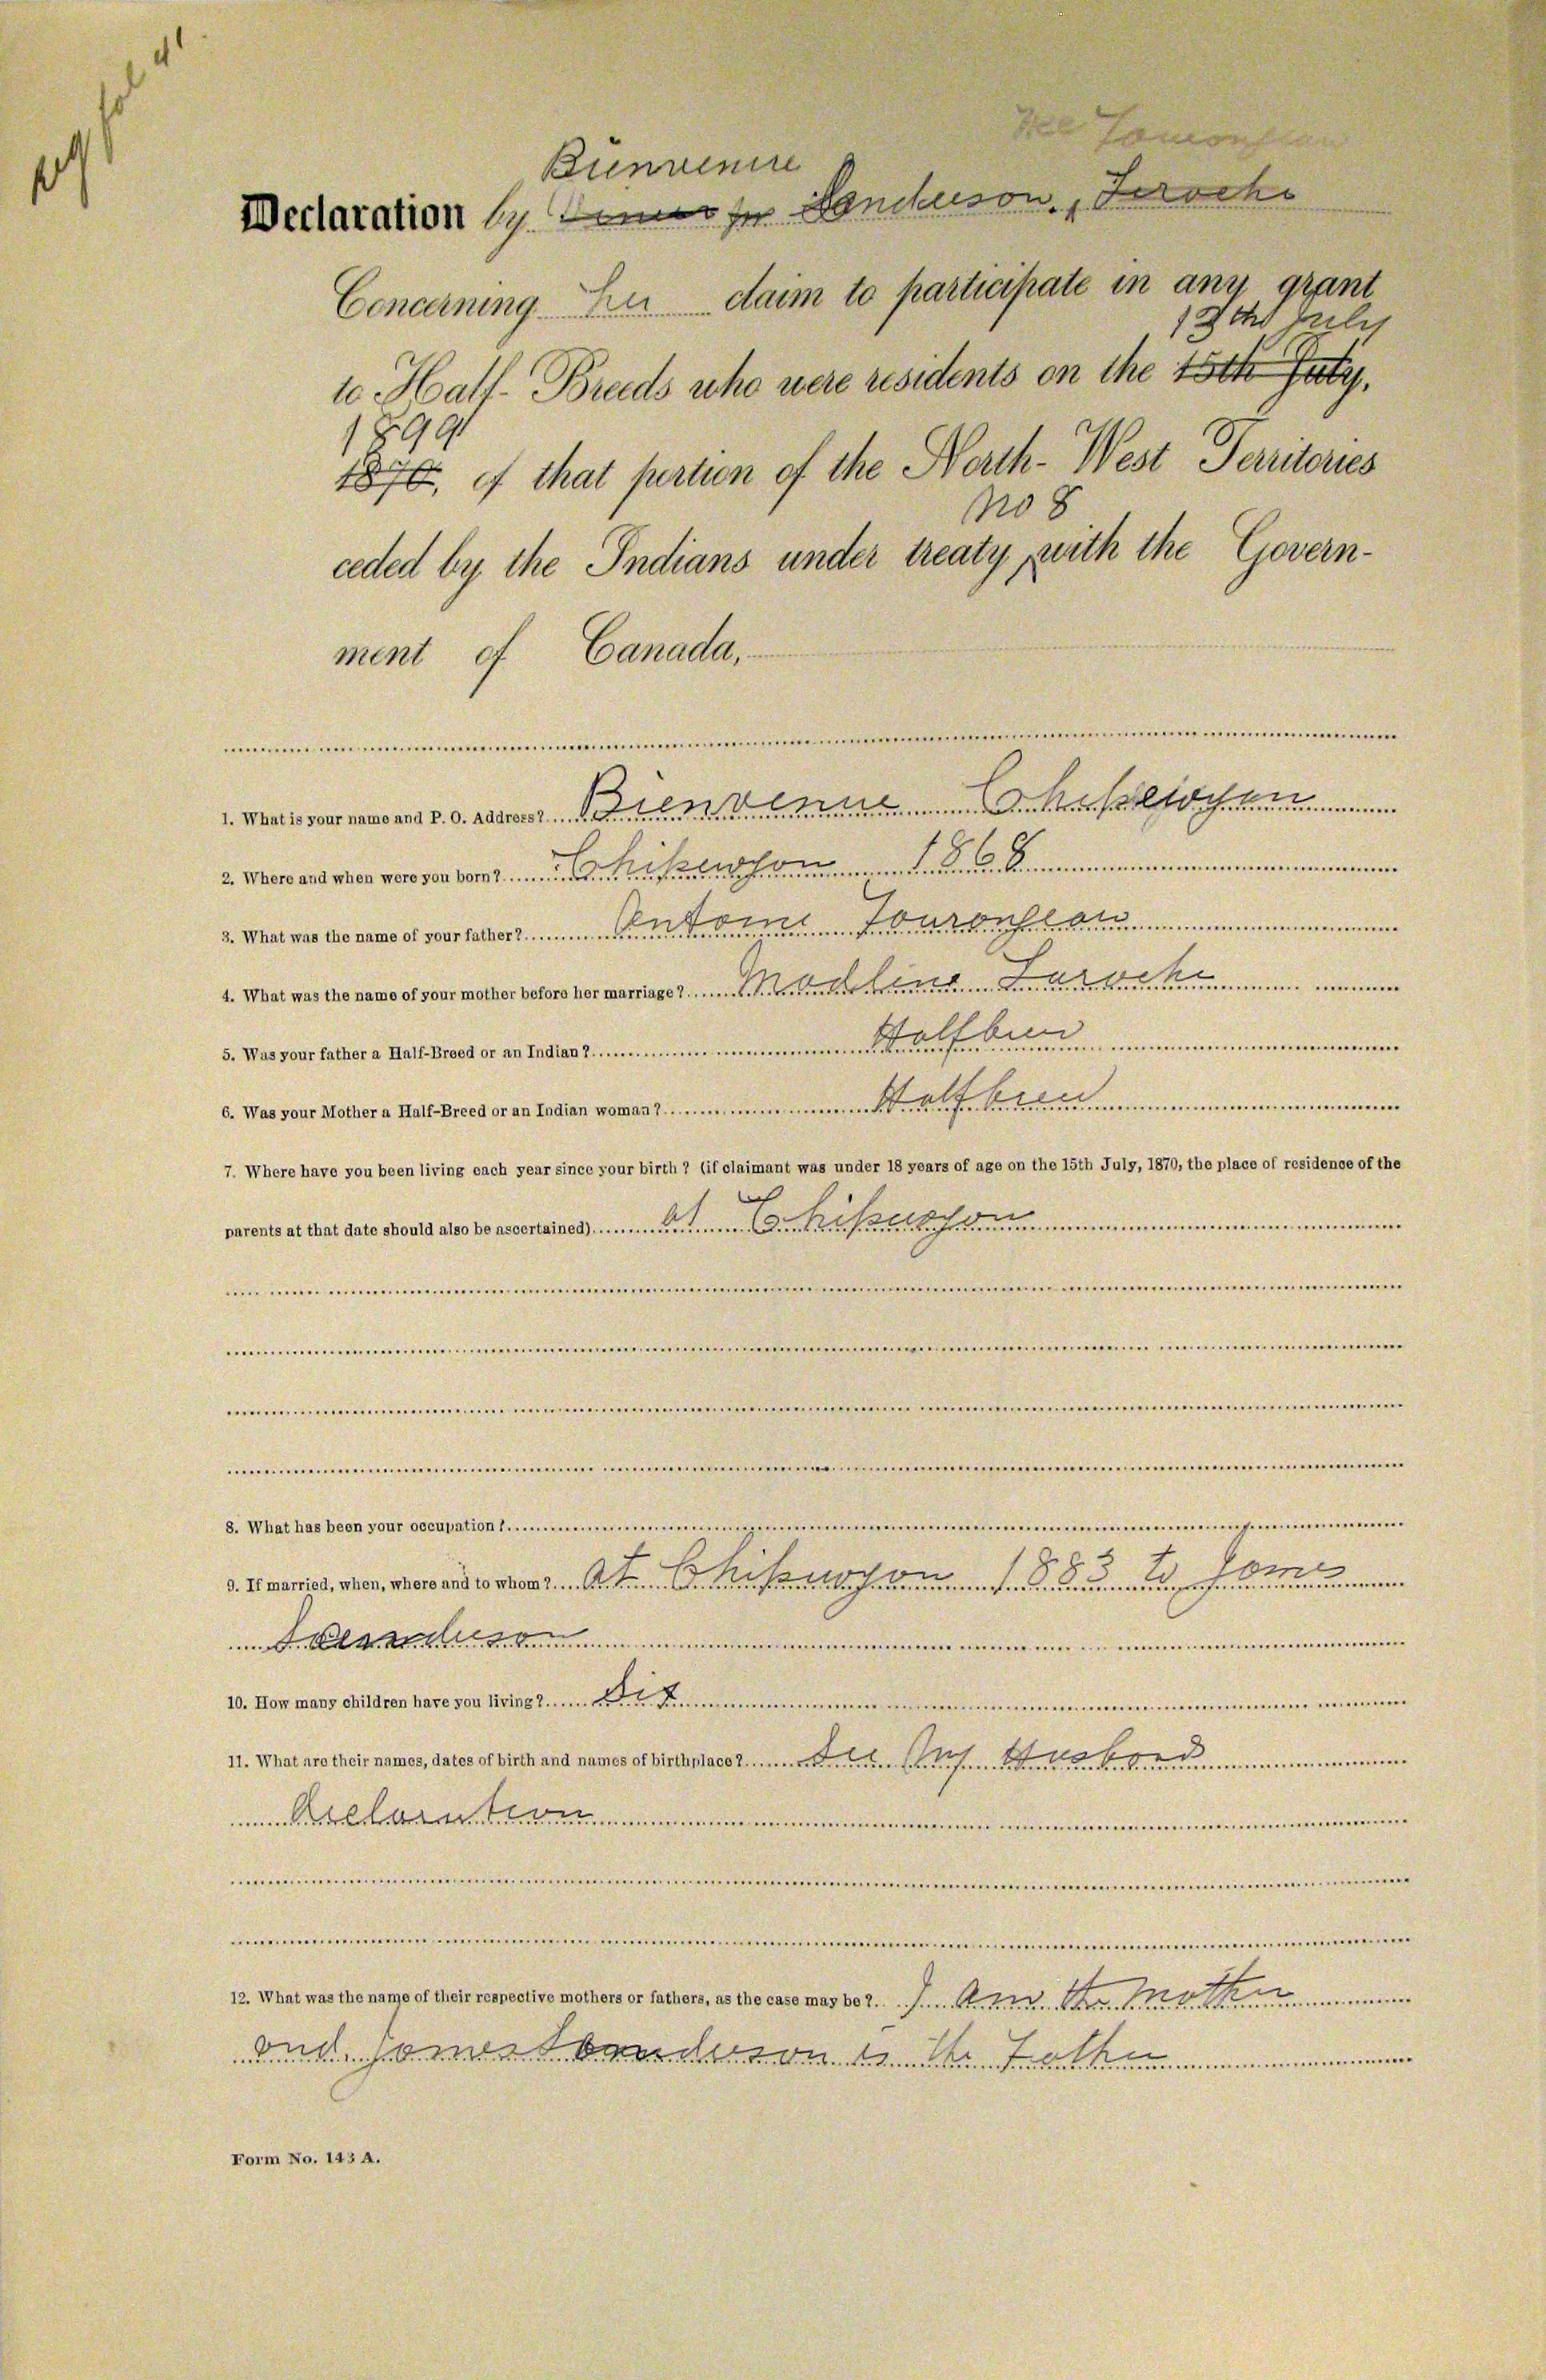 fol 41
Bienvenue
Declaration by Sanderson, Laroche
Concerning her claim to participate in any grant
to Half-Breeds who were residents on the 15th July,
1899
1870, of that portion of the North-West Territories
No 8
ceded by the Indians under treaty with the Govern-
ment of Canada,
1. What is your name and P. O. Address? Bienvenue Chipewyan
2. Where and when were you born? Chipewyan 1868
3. What was the name of your father? Antoine Tourongeau
4. What was the name of your mother before her marriage? Madline Laroche
5. Was your father a Half-Breed or an Indian? Halfbreed
6. Was your Mother a Half-Breed or an Indian woman? Halfbreed
7. Where have you been living each year since your birth? (if claimant was under 18 years of age on the 15th July, 1870, the place of residence of the
parents at that date should also be ascertained) at Chipewyan
8. What has been your occupation?
9. If married, when, where and to whom? at Chipewyan 1883 to James
Sanderson
10. How many children have you living? Six
11. What are their names, dates of birth and names of birthplace? See my Husband
declaration
12. What was the name of their respective mothers or fathers, as the case may be? I am the mother
and James Sanderson is the Father
Form No. 143 A.